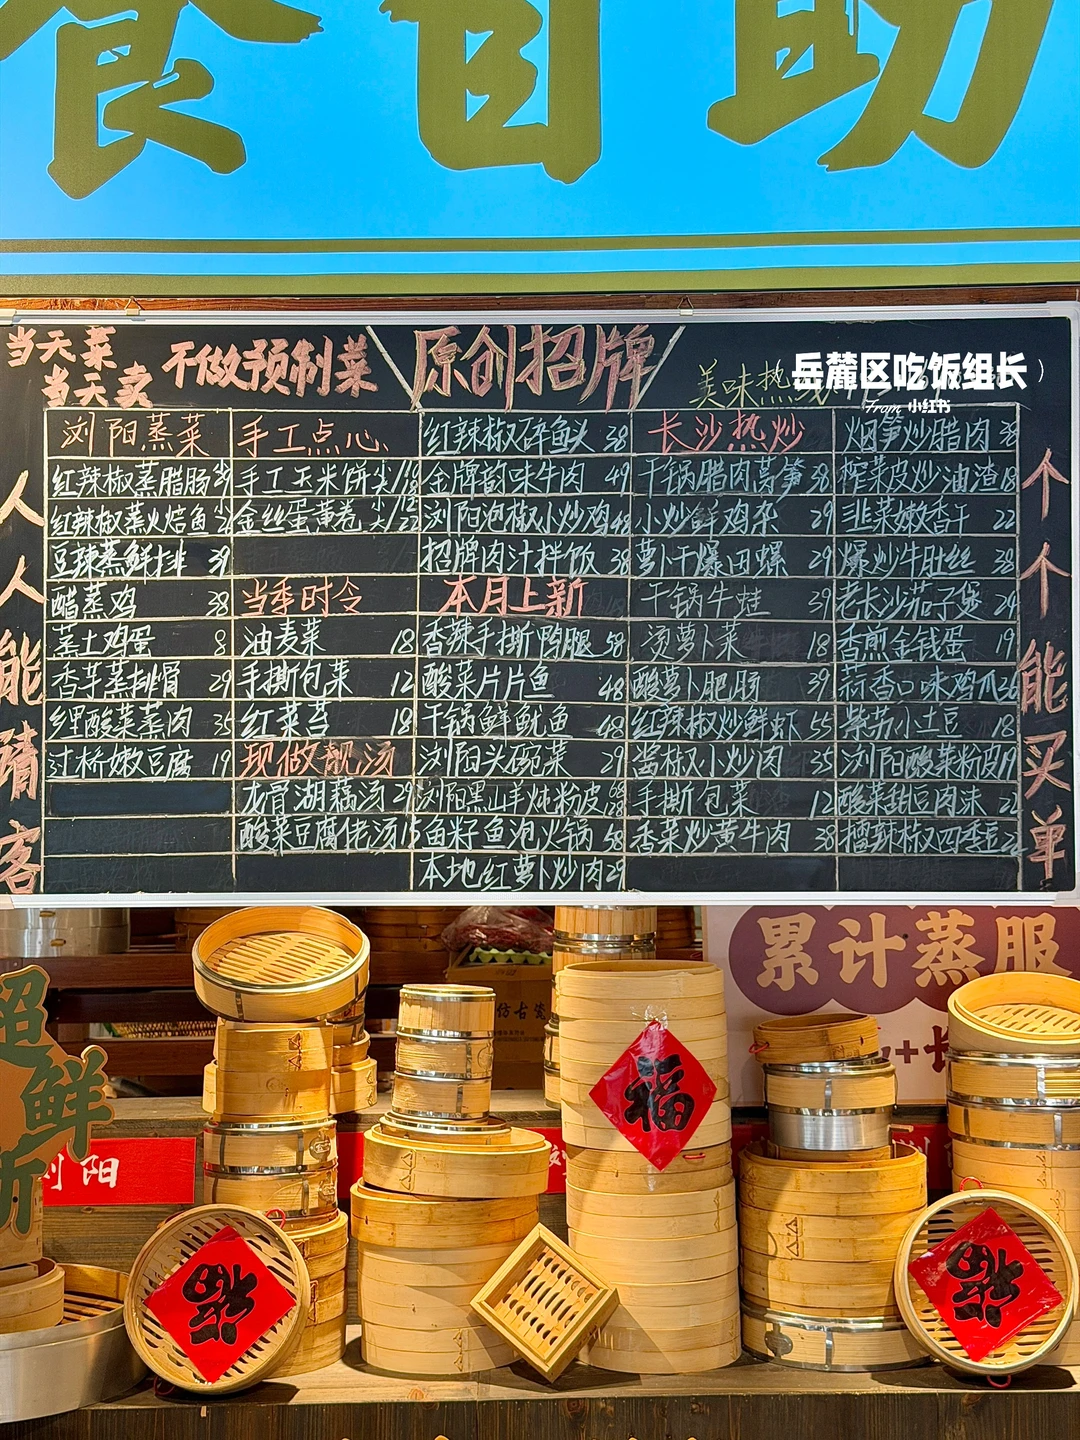 餐自助
当天菜
当天卖
不做预制菜
原创招牌
美味热
岳麓区吃饭组长
From 小红书
人人能请客
个个能买单
浏阳蒸菜
红辣椒蒸腊肠
红辣椒蒸火焙鱼
豆辣蒸鲜排 39
醋蒸鸡 38
蒸土鸡蛋 8
香芋蒸排骨 29
酸菜蒸肉 35
过桥嫩豆腐 19
手工点心
手工玉米饼
金丝蛋黄卷 小/12 大/22
当季时令
油麦菜 18
手撕包菜 12
红菜苔 18
现做靓汤
龙骨湖藕汤 29
酸菜豆腐佬汤 15
红辣椒碎鱼头 38
金牌韵味牛肉 49
浏阳泡椒小炒鸡 48
招牌肉汁拌饭 38
本月上新
香辣手撕鸭腿 58
酸菜片片鱼 48
干锅鲜鱿鱼 48
浏阳头碗菜 29
浏阳黑山羊炖粉皮 68
鱼籽鱼泡火锅 68
本地红萝卜炒肉 29
长沙热炒
干锅腊肉莴笋 38
小炒鲜鸡杂 29
萝卜干爆田螺 29
干锅牛蛙 39
烫萝卜菜 18
酸萝卜肥肠 39
红辣椒炒鲜虾 55
酱椒小炒肉 35
手撕包菜 12
香菜炒黄牛肉 38
烟笋炒腊肉 38
榨菜皮炒油渣 18
韭菜嫩香干 22
爆炒牛肚丝 39
老长沙茄子煲 24
香煎金钱蛋 19
蒜香口味鸡爪 26
紫苏小土豆 18
浏阳酸菜粉皮
酸菜甜豆肉沫 22
擂辣椒四季豆
仿古瓷
累计蒸服
超鲜
浏阳
福
福
福